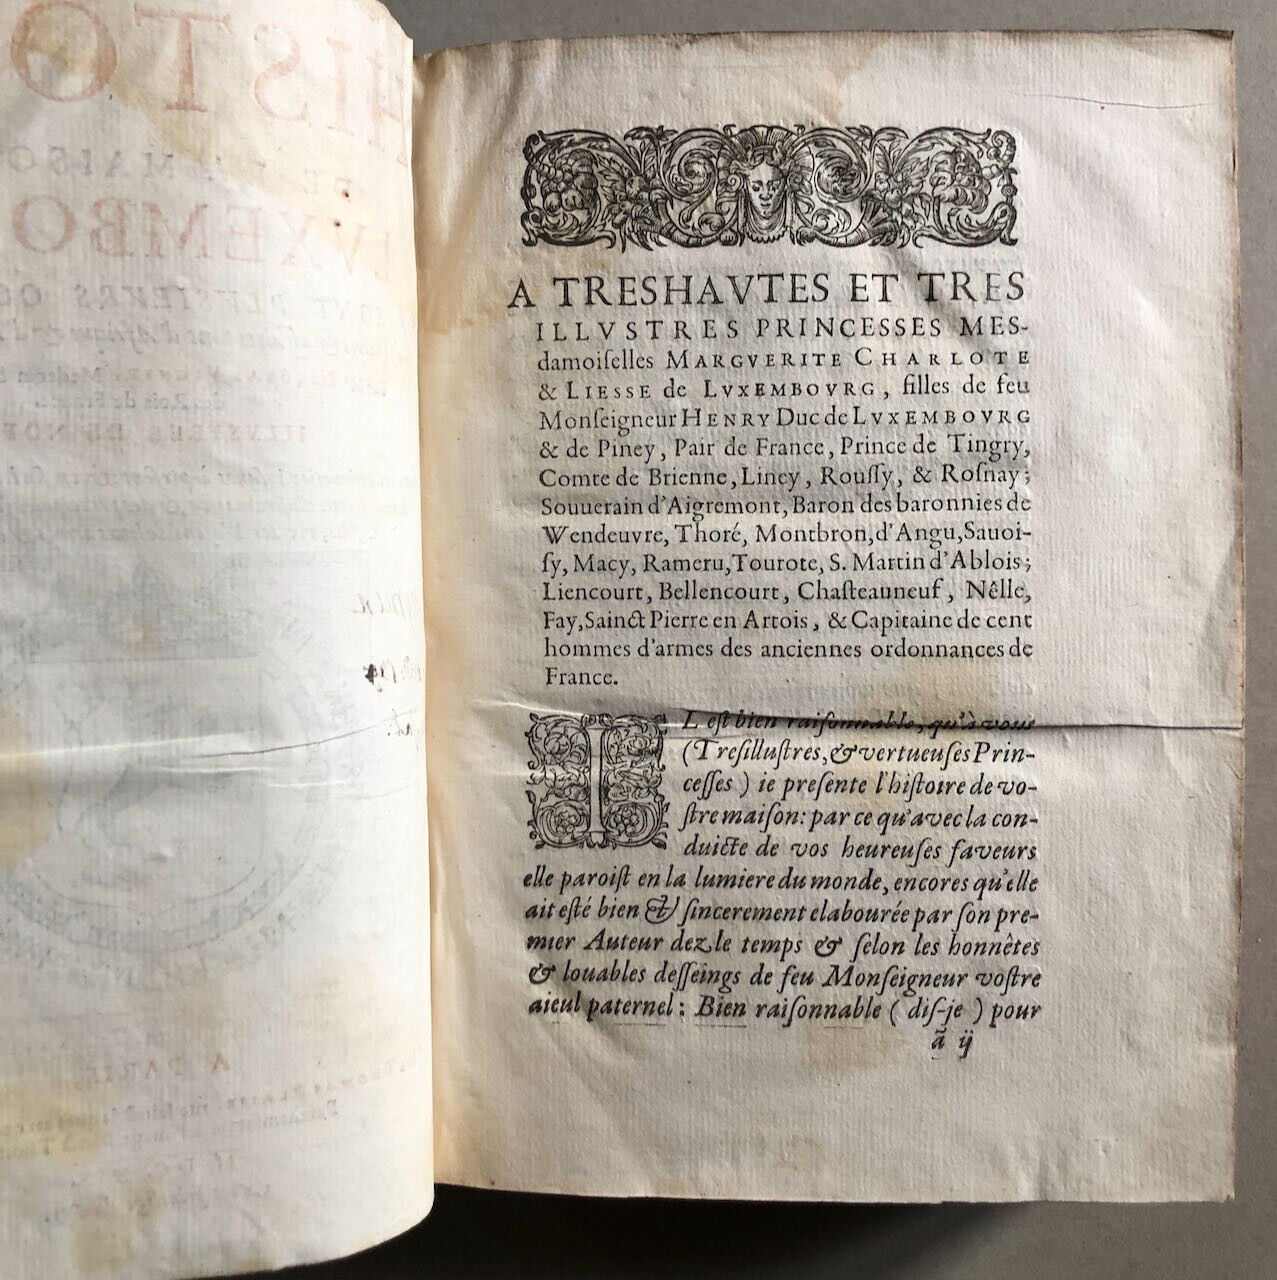 A TRESHAVTES ET TRES
ILLVSTRES PRINCESSES MES-
damoiſelles MARGVERITE CHARLOTE
& LIESSE de LVXEMBOVRG, filles de feu
Monſeigneur HENRY Duc de LVXEMBOVRG
& de Piney, Pair de France, Prince de Tingry,
Comte de Brienne, Liney, Rouſſy, & Roſnay;
Souuerain d'Aigremont, Baron des baronnies de
Wendeuvre, Thoré, Montbron, d'Angu, Sauoi-
ſy, Macy, Rameru, Tourote, S. Martin d'Ablois;
Liencourt, Bellencourt, Chaſteauneuf, Nêlle,
Fay, Sainct Pierre en Artois, & Capitaine de cent
hommes d'armes des anciennes ordonnances de
France.
IL eſt bien raiſonnable, qu'à vous
(Treſilluſtres, & vertueuſes Prin-
ceſſes) ie preſente l'hiſtoire de vo-
ſtre maiſon: par ce qu'avec la con-
duicte de vos heureuſes faveurs
elle paroiſt en la lumiere du monde, encores qu'elle
ait eſté bien & ſincerement elabourée par ſon pre-
mier Auteur dez le temps & ſelon les honnêtes
& louables deſſeings de feu Monſeigneur voſtre
aieul paternel: Bien raiſonnable (diſ-je) pour
ã ij